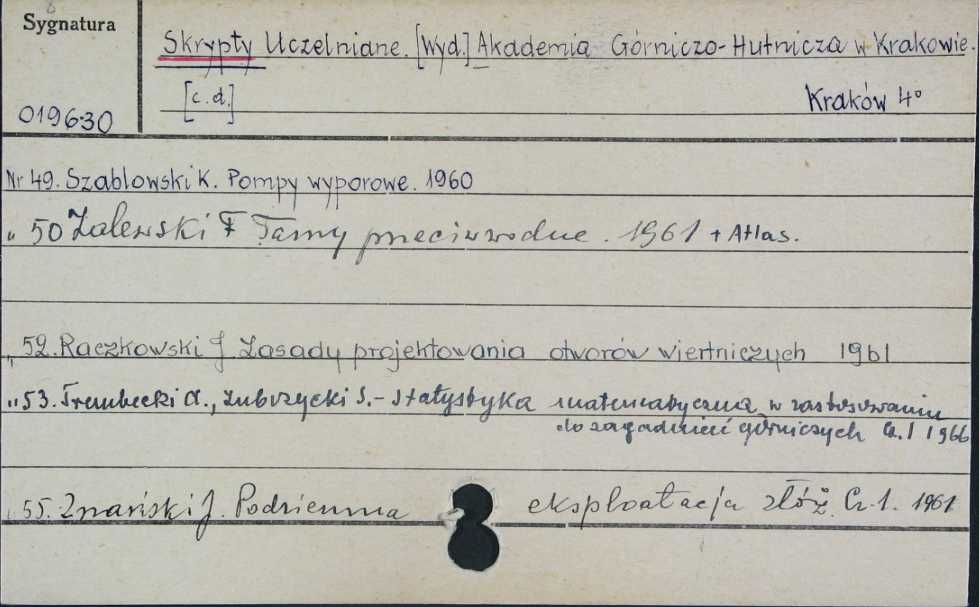 Sygnatura
Skrypty Uczelniane. [Wyd.] Akademia Górniczo-Hutnicza w Krakowie.
[c.d.]
Kraków 4°
019630
Nr 49. Szablowski K. Pompy wyporowe. 1960
„ 50 Zalewski F Tamy przeciwwodne. 1961 + Atlas.
„ 52. Raczkowski J Zasady projektowania otworów wiertniczych 1961
„ 53. Trembecki A., Zubrzycki S. - Statystyka matematyczna w zastosowaniu
do zagadnień górniczych Cz. I 1966
„ 55. Znański J. Podziemna eksploatacja złóż. Cz. 1. 1961